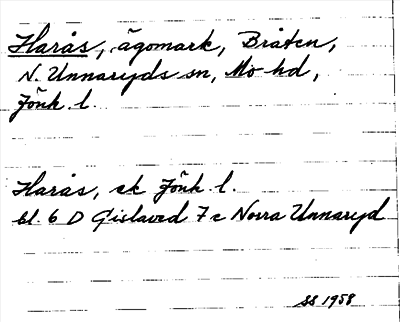 Harås, ägomark, Bråten,
N. Unnaryds sn, Mo hd,
Jönk l.
Harås, ek Jönk l.
bl. 6 D Gislaved 7 c Norra Unnaryd
SS 1958